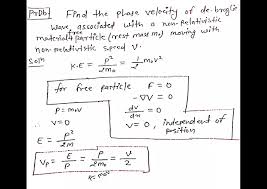 Prob: Find the phase velocity of de-broglie
wave, associated with a non-relativistic
material free particle (rest mass m₀) moving with
non-relativistic speed v.
Soln K.E = p²/2m₀ = 1/2 m₀v²
for free particle F = 0
-∇V = 0
P = m₀v
dv/dx = 0
∴ V=0
V = 0, independent of
position
E = p²/2m
Vp = E/P = P/2m₀ = v/2